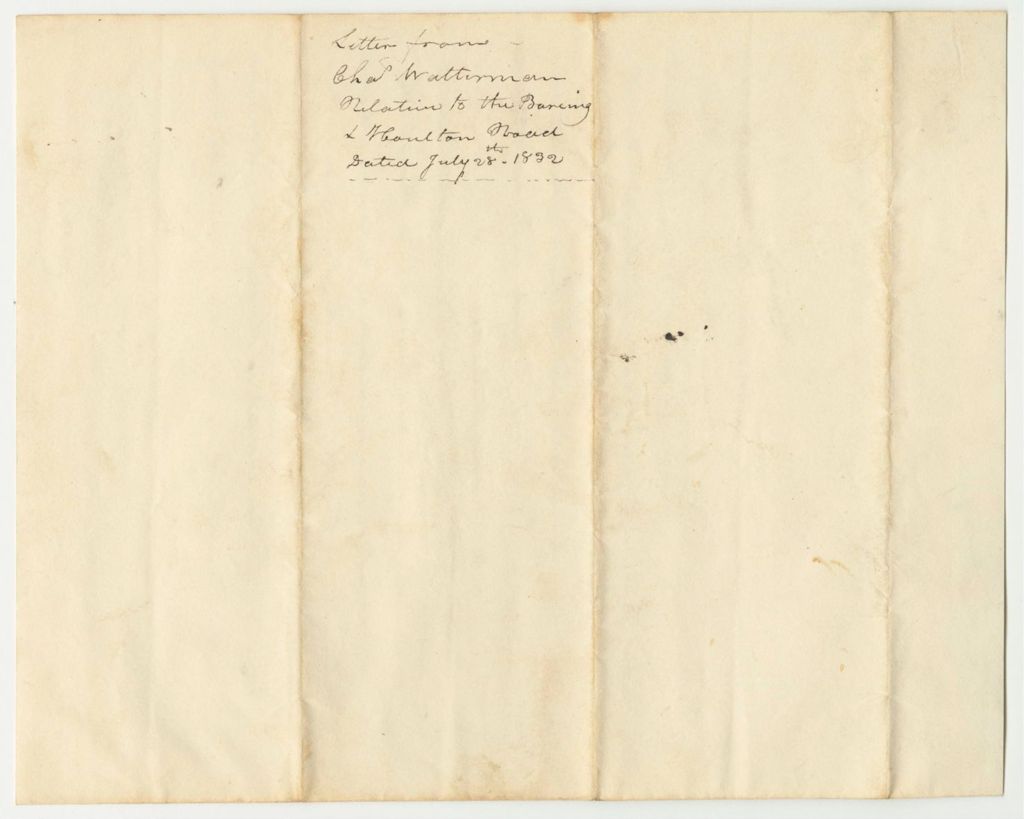 Letter from
Chas Watterman
Relative to the Bareing
& Houlton Road
Dated July 28th. 1832